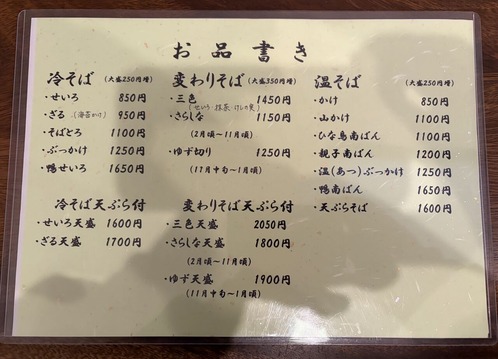 お品書き
冷そば (大盛250円増)
・せいろ 850円
・ざる (海苔かけ) 950円
・そばとろ 1100円
・ぶっかけ 1250円
・鴨せいろ 1650円
冷そば天ぷら付
・せいろ天盛 1600円
・ざる天盛 1700円
変わりそば (大盛350円増)
・三色 1450円
(せいろ・抹茶・けしの実)
・さらしな 1150円
(2月頃〜11月頃)
・ゆず切り 1250円
(11月中旬〜1月頃)
変わりそば天ぷら付
・三色天盛 2050円
・さらしな天盛 1800円
(2月頃〜11月頃)
・ゆず天盛 1900円
(11月中旬〜1月頃)
温そば (大盛250円増)
・かけ 850円
・山かけ 1100円
・ひな鳥南ばん 1100円
・親子南ばん 1200円
・温(あつ)ぶっかけ 1250円
・鴨南ばん 1650円
・天ぷらそば 1600円